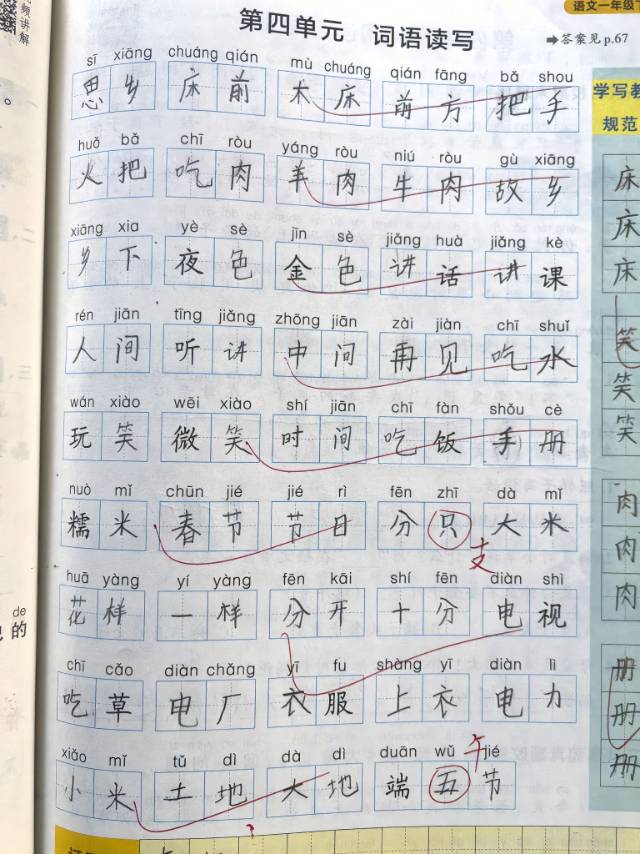 语文一年级下
第四单元 词语读写
➡答案见 p.67
频讲解
sī xiāng chuáng qián mù chuáng qián fāng bǎ shou
思乡 床前 木床 前方 把手
学写教
规范
huǒ bǎ chī ròu yáng ròu niú ròu gù xiāng
火把 吃肉 羊肉 牛肉 故乡
床
xiāng xia yè sè jīn sè jiǎng huà jiǎng kè
乡下 夜色 金色 讲话 讲课
床
床
rén jiān tīng jiǎng zhōng jiān zài jiàn chī shuǐ
人间 听讲 中间 再见 吃水
笑
笑
wán xiào wēi xiào shí jiān chī fàn shǒu cè
玩笑 微笑 时间 吃饭 手册
笑
nuò mǐ chūn jié jié rì fēn zhī dà mǐ
糯米 春节 节日 分只 大米
支
肉
肉
huā yàng yí yàng fēn kāi shí fēn diàn shì
花样 一样 分开 十分 电视
肉
de
的
chī cǎo diàn chǎng yī fu shàng yī diàn lì
吃草 电厂 衣服 上衣 电力
册
册
xiǎo mǐ tǔ dì dà dì duān wǔ jié
午
小米 土地 大地 端五节
册